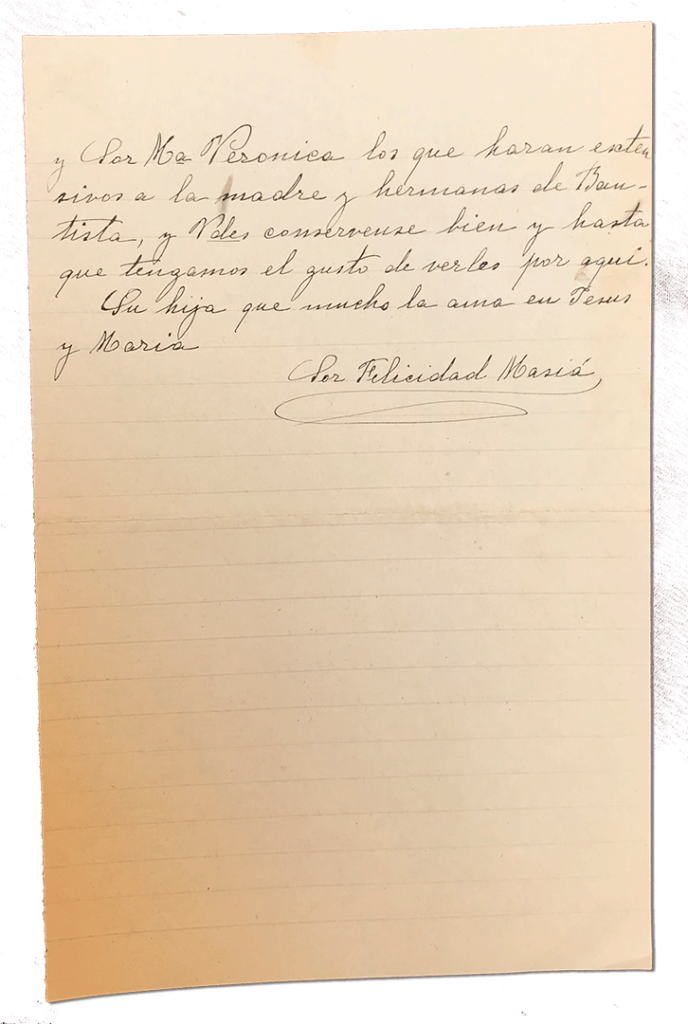 y Sor Mª Veronica los que haran exten
sivos a la madre y hermanas de Bau-
tista, y Vdes conservense bien y hasta
que tengamos el gusto de verles por aqui.
Su hija que mucho la ama en Jesus
y Maria
Sor Felicidad Masiá